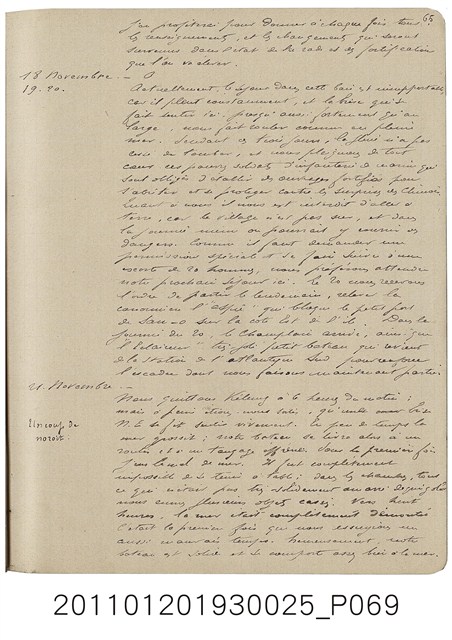 65
J'en profiterai pour donner à chaque fois, tous
les renseignements, et les changements qui seront
survenus dans l'état de la rade et des fortifications
que l'on va élever.
18 Novembre. —
19. 20.
Actuellement, le séjour dans cette baie est insupportable,
car il pleut constamment, et la brise qui se
fait sentir ici, presqu'aussi fortement qu'au
large, nous fait rouler comme en pleine
mer. Pendant ces trois jours, la pluie n'a pas
cessé de tomber, et nous plaignons de tout
cœur ces pauvres soldats d'infanterie de marine qui
sont obligés d'établir des ouvrages fortifiés pour
s'abriter et se protéger contre les surprises des Chinois.
Quant à nous il nous est interdit d'aller à
terre, car le village n'est pas sûr, et dans
la journée même on pourrait y courir des
dangers. Comme il faut demander une
permission spéciale et se faire suivre d'une
escorte de 20 hommes, nous préférons attendre
notre prochain séjour ici. Le 20 nous recevons
l'ordre de partir le lendemain, relever la
canonnière l'"Aspic" qui bloque le petit port
de sur la côte Est de l'île. Dans la
journée du 20 le Champlain arrive, ainsi que
l'"Eclaireur" très joli petit bateau qui revient
de la station de l'Atlantique Sud pour renforcer
l'escadre dont nous faisons maintenant partie.
21. Novembre. —
Un coup de
noroit.
Nous quittons Kélung à 6 heures du matin;
mais à peine étions-nous sortis, qu'une brise
N.E. se fait sentir vivement. En peu de temps la
mer grossit; notre bateau se livre alors à un
roulis et à un tangage effréné. Pour la première fois
j'eus le mal de mer. Il fut complètement
impossible de se tenir à table; dans les chambres, tous
ce qui n'était pas très solidement amarré dégringola
nous eûmes plusieurs objets cassés. Vers huit
heures la mer était complètement démontée
C'était la première fois que nous essuyions un
aussi mauvais temps. Heureusement, notre
bateau est solide et se comporte assez bien à la mer.
201101201930025_P069